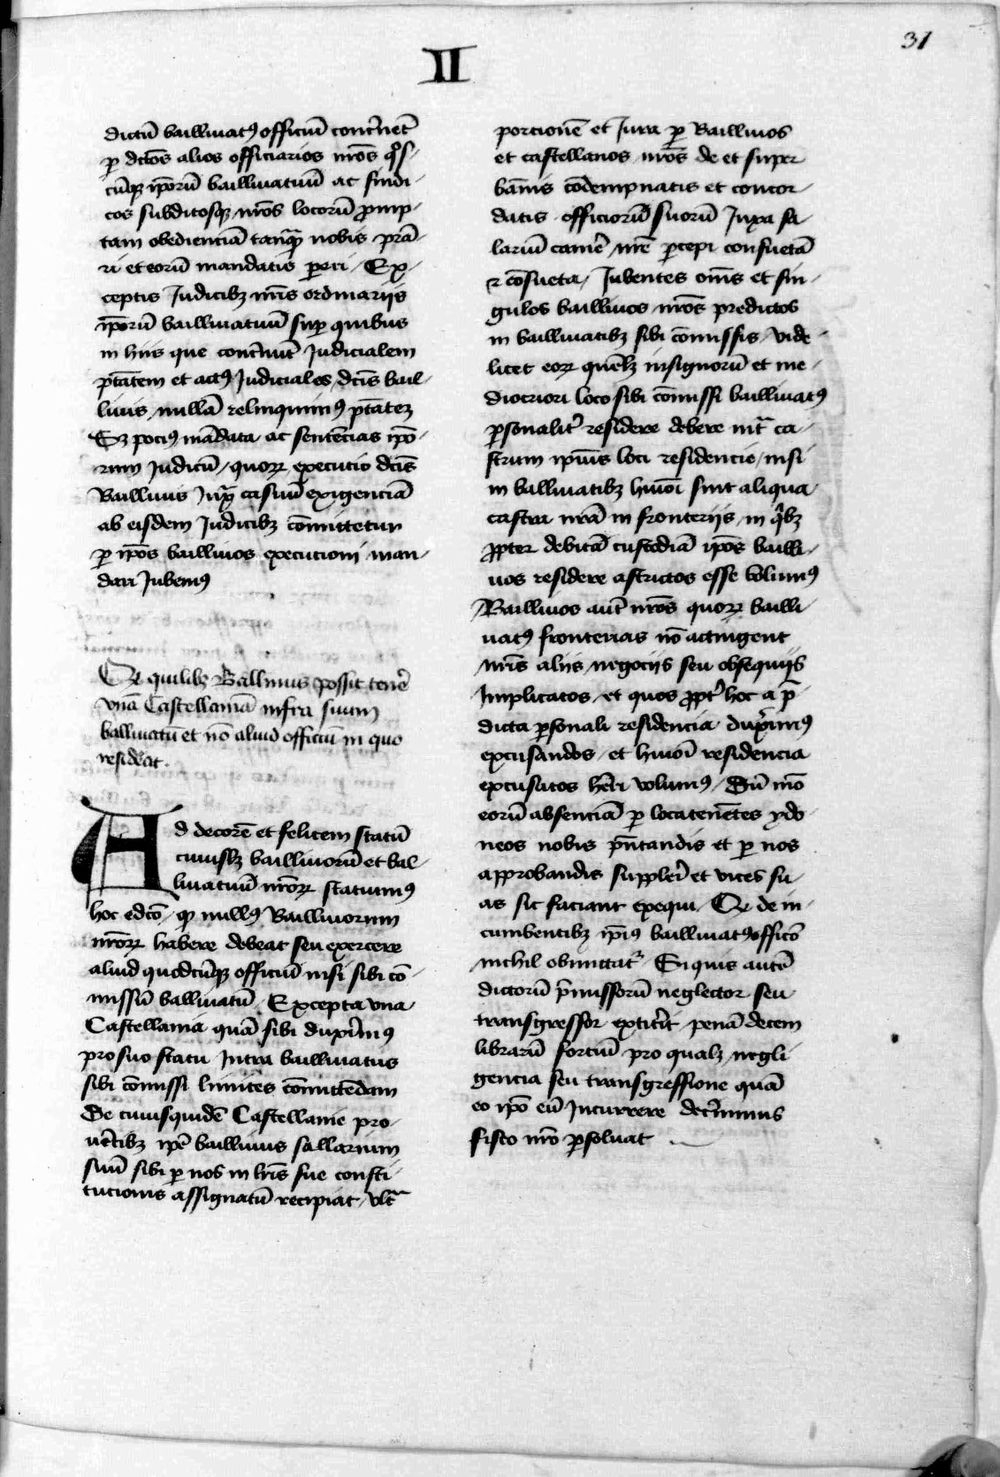 31
II
dictū baillivatꝰ officiū concˀnēt
ꝑ dc̄os alios officiarios nr̄os qͦs-
cūqꝫ ip̄orū baillivatuū ac sindi-
cos subditosqꝫ nr̄os locorū promp-
tam obedienciā tanqꝫ nobis prā-
ri et eorū mandatis pareri / Ex-
ceptis Judicibꝫ nr̄is ordinariis
ip̄orū baillivatuū suꝑ quibus
in hiis que concˀnūt Judicialem
ptātem et actꝰ Judiciales / dc̄is bail-
livis nullā relinquimꝰ ptātez
Sꝫ pociꝰ mādata ac sentēcias ipō-
rum Judicū / quoꝝ executio dc̄is
Baillivis Juxᵃ casuū exigenciā
ab eisdem Judicibꝫ cōmittetur
ꝑ ip̄os baillivos execucioni man-
dari Jubemꝰ
Qꝫ quilibꝫ Ballivus possit tenē
unā Castellaniā infra suum
ballivatū et nō aliud officiū in quo
resideat.
Ad decorē et felicem statū
cuiuslꝫ baillivorū et bal-
livatuū nr̄oꝝ statuimꝰ
hoc edcō / qꝫ nullꝰ Baillivorum
nr̄oꝝ habere debeat seu exercere
aliud quodcūqꝫ officiū nisi sibi cō-
missū ballivatū / Excepta una
Castellania quā sibi duxˀimꝰ
pro suo statu Intra baillivatus
sibi cōmissi limites cōmittēdam
De cuiusquidē Castellanie pro-
vētibꝫ ipē baillivus sallarium
suū sibi ꝑ nos in lr̄is sue consti-
tucionis assignatū recipiat / vltᵃ
porcionē et Jura ꝑ Baillivos
et castellanos nr̄os de et super
bānis cōdempnatis et concor-
datis officiorū suorū Juxa sa-
lariū camerˀ nr̄e ꝑcepi consuetā
⁊ cōsueta / Jubentes om̄s et sin-
gulos baillivos nr̄os predictos
in baillivatibꝫ sibi cōmissis / vide-
licet eoꝝ quēlꝫ insigniorū et me-
diocriori loco sibi cōmissi baillivatꝰ
ꝑsonalitˀ residere debere intᵃ ca-
strum ipīus loci residencie / nisi
in ballivatibꝫ hmōi sint aliqua
castra nrā in fronteriis / in qͥbꝫ
ꝓpter debitā custodiā ip̄os bailli-
vos residere astrictos esse volumꝰ
Baillivos autˀ nr̄os quoꝝ bailli
vatꝰ fronterias nō actingent
nr̄is aliis negociis seu obsequiis
Implicatos et quos ꝓptˀ hoc a p̄-
dicta ꝑsonali residencia duxˀimꝰ
excusandos / et hmōi residencia
excusatos hr̄i volumꝰ / Dū mō
eorū absenciā ꝑ locatenētes ydo
neos nobis pn̄tandis et ꝑ nos
approbandis supplerˀ et vices su-
as sic faciant exequi / Qꝫ de in-
cumbentibꝫ ipiꝰ baillivatꝰ officō
nichil obmittatᵘʳ / Si quis autē
dictorū p̄missorū neglector seu
transgressor extitˀit penā decem
librarū forciū pro qualꝫ negli
gencia seu transgressione quā
eo ipō eū Incurrere decˀnimus
fisco nr̄o ꝑsolvat